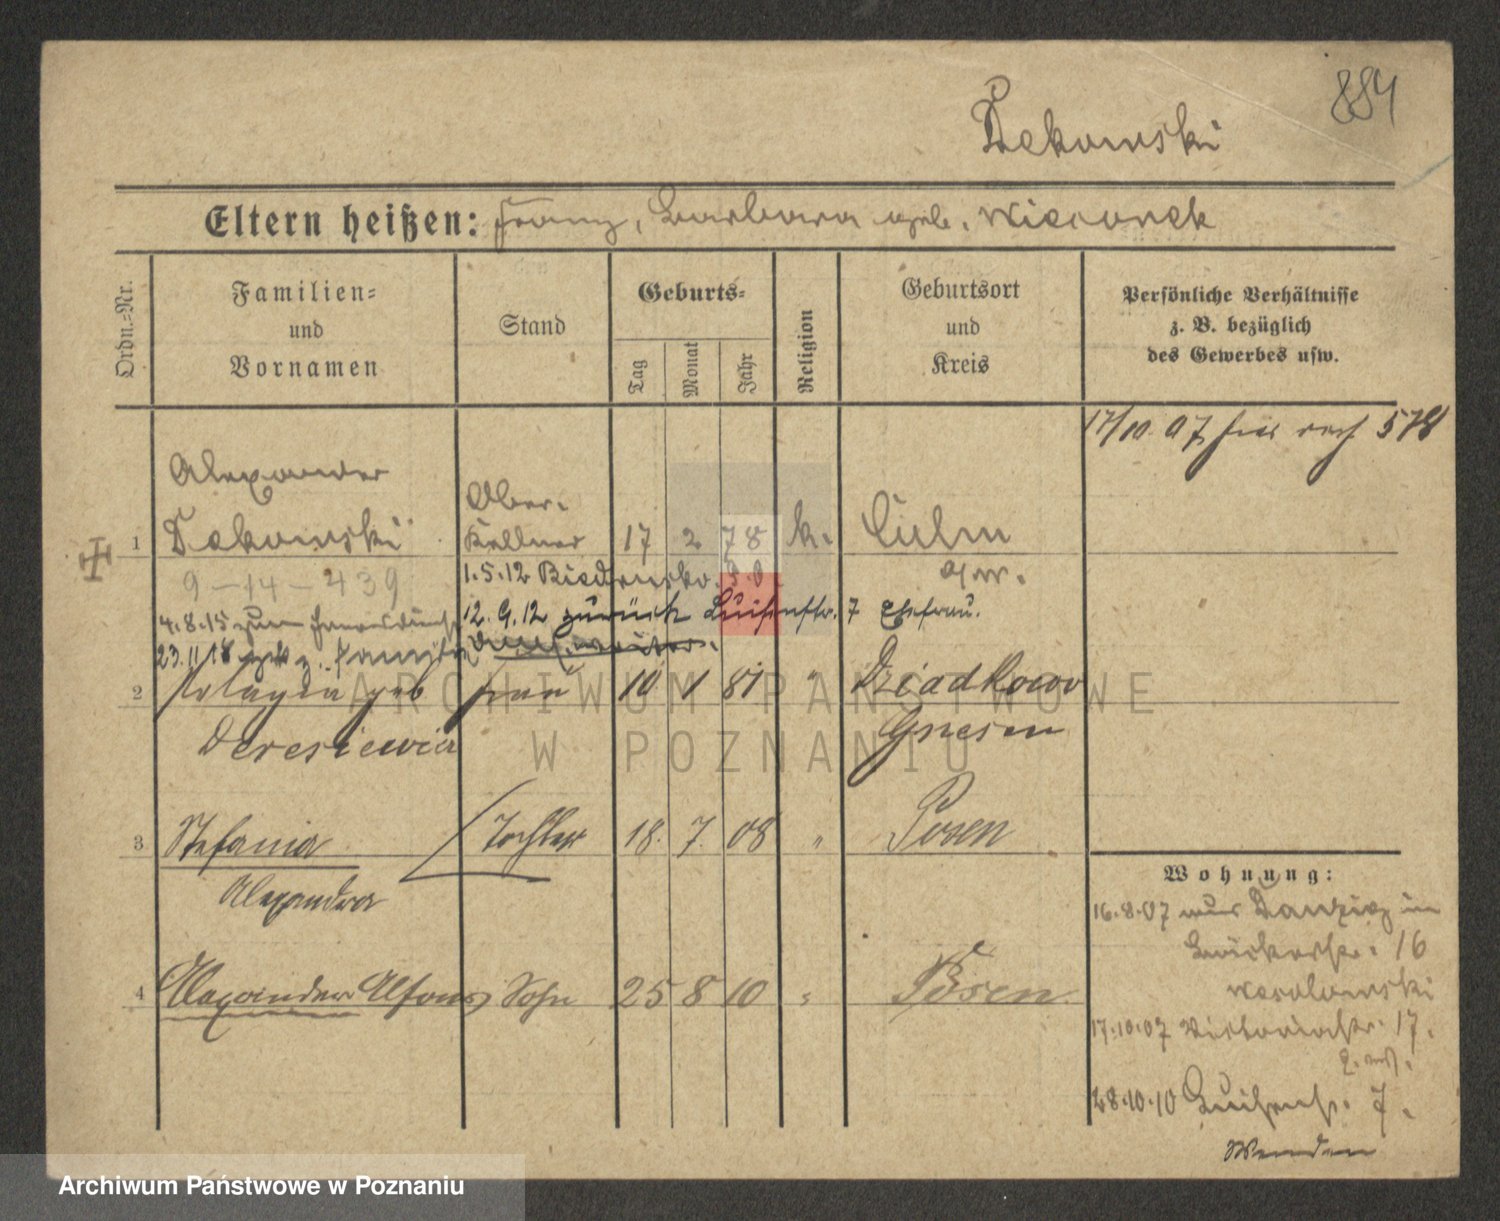 884
Dekowski
Eltern heißen: Franz, Barbara geb. Wieczorek
Ordn.-Nr.
Familien-
und
Vornamen
Stand
Geburts-
Tag
Monat
Jahr
Religion
Geburtsort
und
Kreis
Persönliche Verhältnisse
z. B. bezüglich
des Gewerbes usw.
17/10 07 hier nach 578
Alexander
Ober-
1 Dekowski Kellner 17 2 78 k. Culm
9-14-439
1.5.12 Biedrusko
a/W.
4.8.15 zum Heeresdienst
12.9.12 zurück Luisenstr. 7 Ehefrau.
23.11.18 z. Familie
2 Pelagia geb Frau 10 1 81 " Dziadkowo
Deresiewicz
Gnesen
3 Stefania Tochter 18. 7. 08 " Posen
Alexandra
4 Alexander Alfons Sohn 25 8 10 " Posen
Wohnung:
16.8.07 aus Danzig in
Bäckerstr. 16
17.10.07 Victoriastr. 17.
28.10.10 Luisenstr. 7.
Wenden
ARCHIWUM PAŃSTWOWE
W POZNANIU
Archiwum Państwowe w Poznaniu